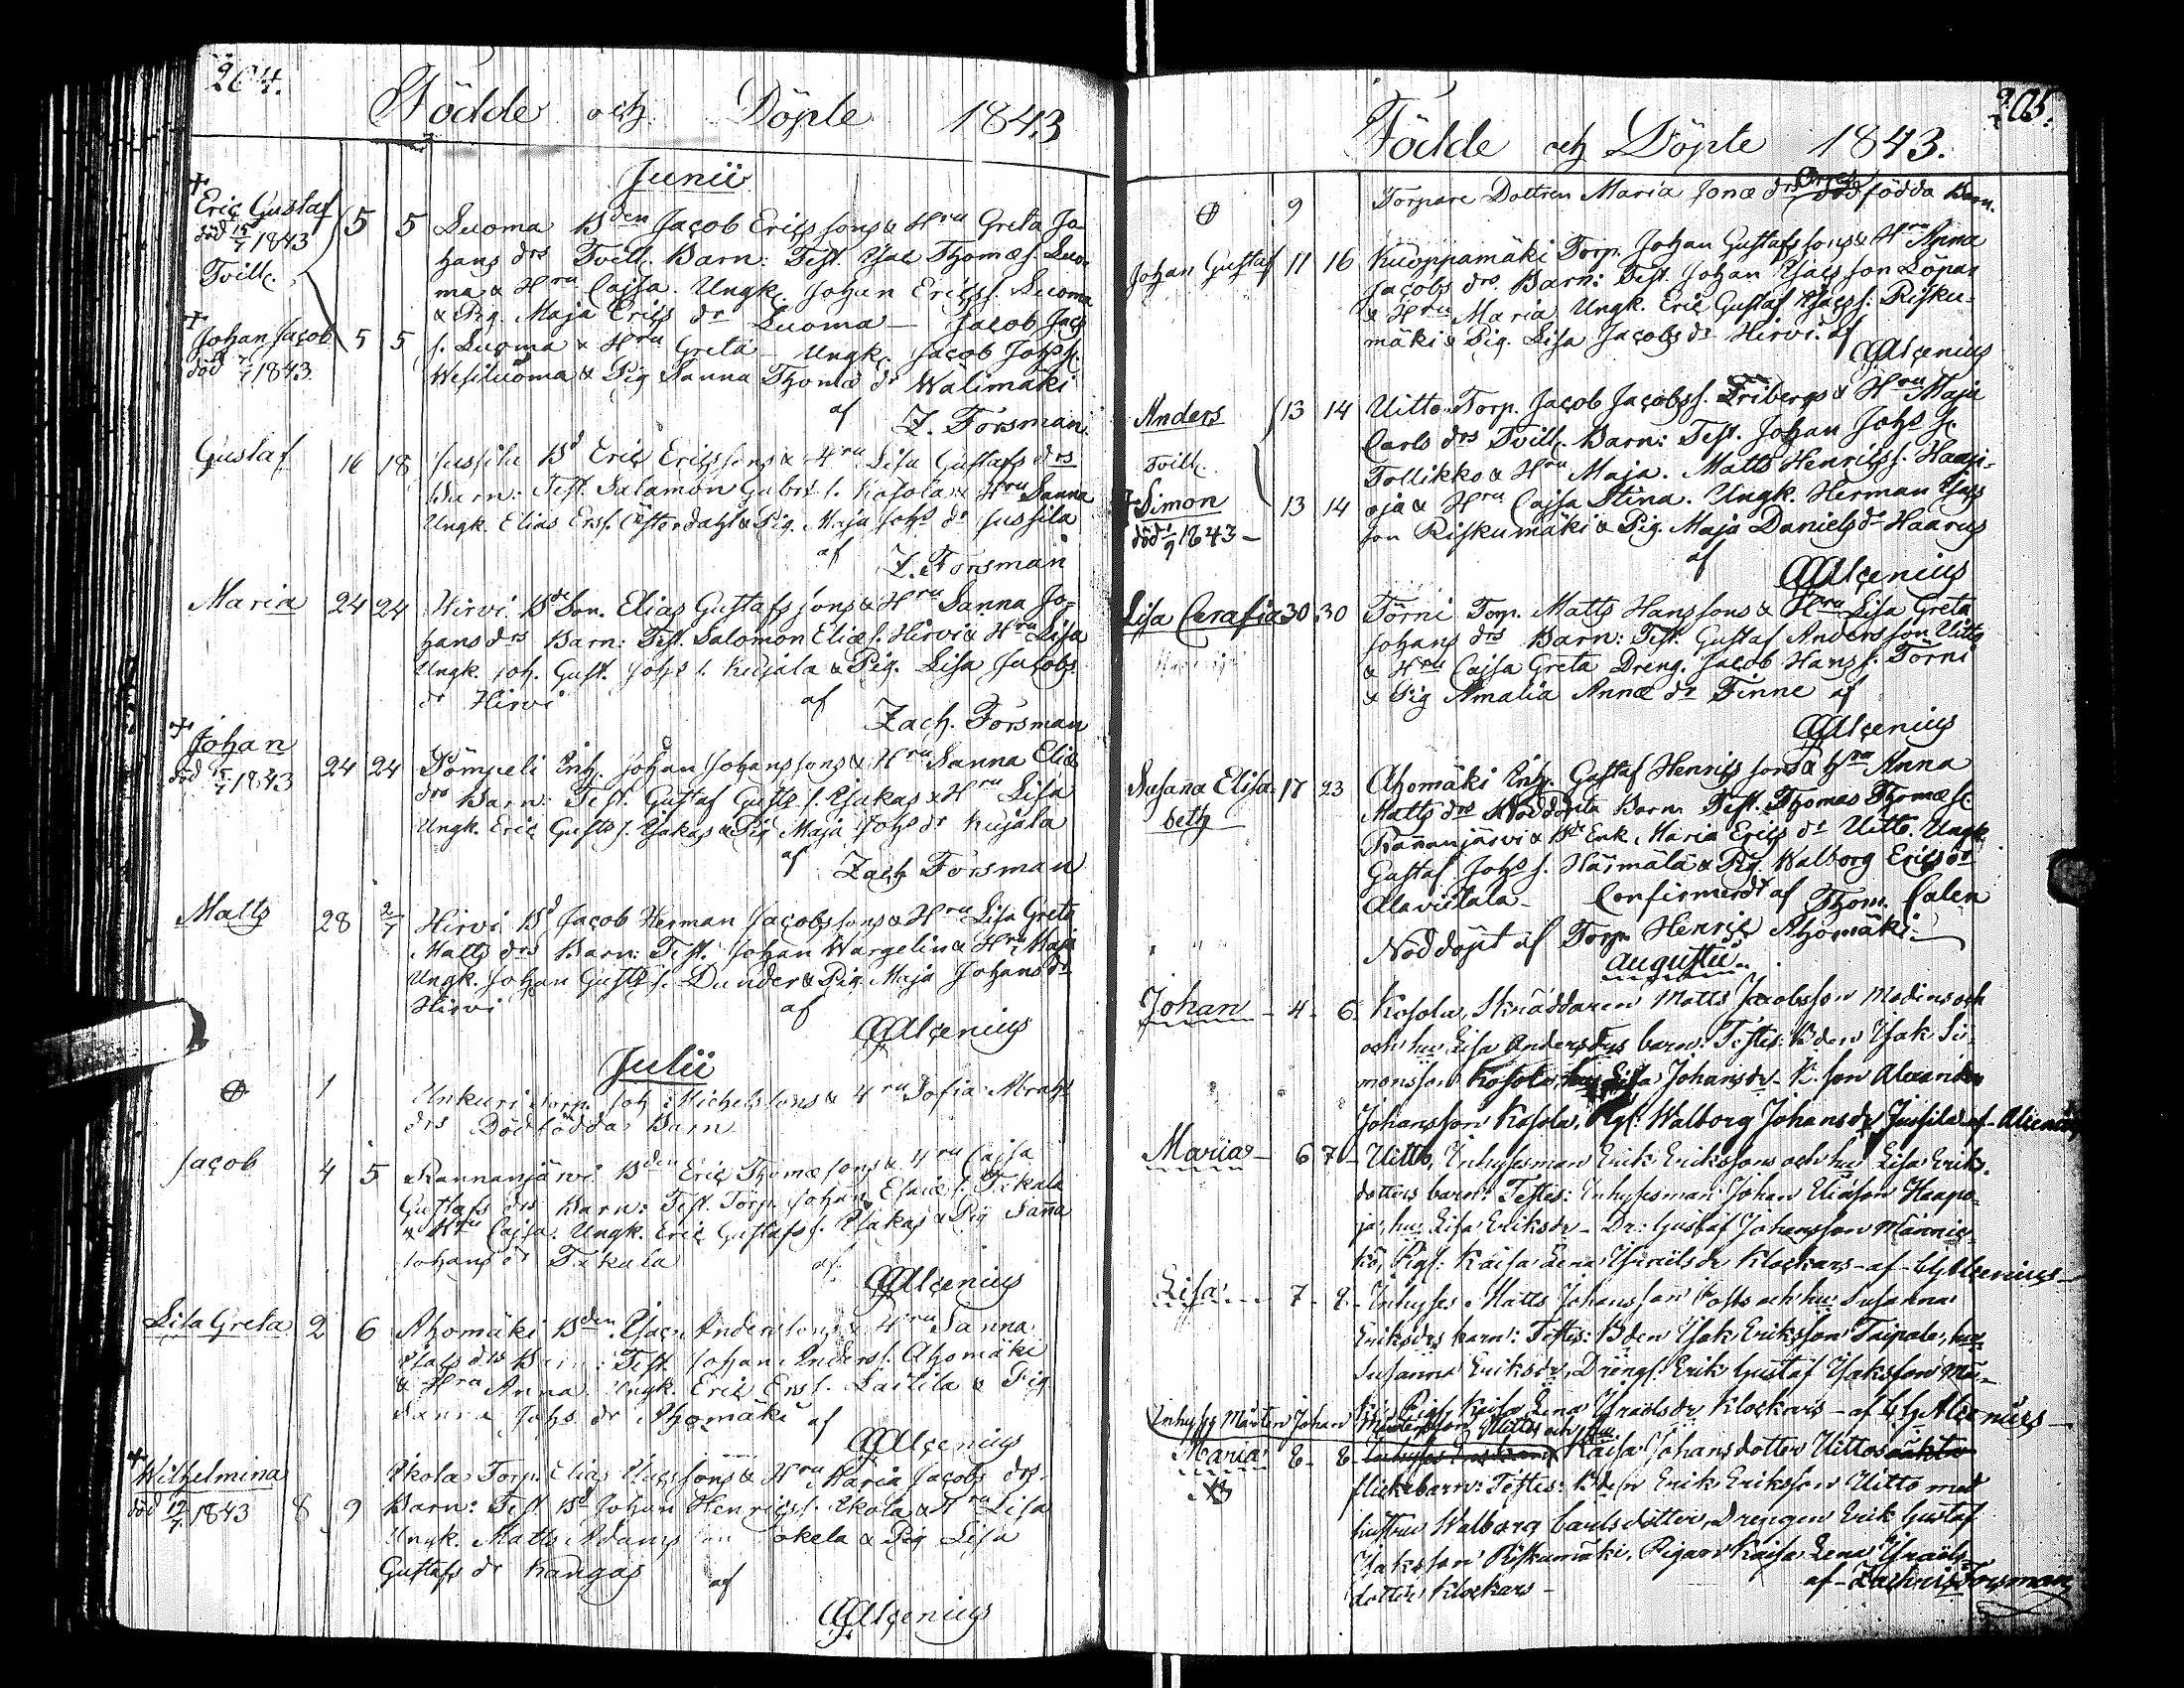 204.
Födde och Döpte 1843
Junii
Eric Gustaf 5 5 Luoma Bden Jacob Ericssons & Hru Greta Jo-
död 1843
hans drs Tvill. Barn: Test. Isac Thomæ s. Luo-
Tvill.
ma & Hru Cajsa. Ungk. Johan Erics s. Luoma
& Pig. Maja Erics dr Luoma — Jacob Jacs
Johan Jacob 5 5 s. Luoma & Hru Greta — Ungk. Jacob Johs s.
död 1843.
Wesiluoma & Pig Sanna Thomæ dr Wälimäki
af Z. Forsman.
Gustaf 16 18 Jussila Bd Eric Ericssons & Hru Lisa Gustafs drs
Barn: Test. Salamon Gabrs s. Kosola & Hru Sanna
Ungk. Elias Ers s. Österdahl & Pig. Maja Johs dr Jussila
af Z. Forsman
Maria 24 24 Hirvi Bde Son. Elias Gustafssons & Hru Sanna Jo-
hans drs Barn: Test. Salomon Eliæ s. Hirvi & Hru Lisa
Ungk. Joh. Gust. Johs s. Kujala & Pig. Lisa Jacobs
dr Hirvi af
Zach. Forsman
Johan 24 24 Pömpeli Inh. Johan Johanssons & Hru Sanna Eliæ
död 1843
drs Barn: Test. Gustaf Gusts s. Ysakas & Hru Lisa
Ungk. Eric Gusts s. Ysakas & Pig Maja Johs dr Kujala
af Zach Forsman
Matts 28 2/7 Hirvi Bd Jacob Herman Jacobssons & Hru Lisa Greta
Matts drs Barn: Test. Johan Wargelin & Hru Maja
Ungk. Johan Gusts s. Dunder & Pig. Maja Johans dr
Hirvi af
Alcenius
Julii
1 Unkuri Torp. Joh. Michelssons & Hru Sofia Abrah.
drs Dödfödda Barn
Jacob 4 5 Rannanjärvi Bden Eric Thomæsons & Hru Cajsa
Gustafs drs Barn: Test. Torp. Johan Esaiæ s. Tikala
& Hru Cajsa. Ungk. Eric Gustafs s. Ysakas & Pig Sanna
Johans dr Tikala af
Alcenius
Lisa Greta 2 6 Ahomäki Bden Isac Anderssons & Hru Sanna
Isacs drs Barn: Test. Johan Anders s. Ahomäki
& Hru Anna. Ungk. Eric Ers s. Lassila & Pig.
Sanna Johs dr Ahomäki af
Alcenius
Wilhelmina 8 9 Ikola Torp. Elias Isacssons & Hru Maria Jacobs drs
död 12/7 1843
Barn: Test. Bd Johan Henrics s. Ikola & Hru Lisa
Ungk. Matts Adams & Pig Lisa
Gustafs dr Kangas af
Alcenius
205.
Födde och Döpte 1843.
9 Torpare Dottren Maria Jonæ drs dödfödda Barn.
Johan Gustaf 11 16 Kuoppamäki Torp. Johan Gustafssons & Hru Anna
Jacobs drs Barn: Test. Johan Isacsson Löpar
& Hru Maria Ungk. Eric Gustaf Isacs s. Risku-
mäki & Pig. Lisa Jacobs dr Hirvi. af
Alcenius
Anders 13 14 Uitto Torp. Jacob Jacobs s. Fribergs & Hru Maja
Carls drs Tvill. Barn: Test. Johan Johs s.
Tvill.
Tollikko & Hru Maja. Matts Henrics s. Haapi-
Simon 13 14 oja & Hru Cajsa Stina. Ungk. Herman Isacs
död 1/9 1843 —
son Riskumäki & Pig. Maja Daniels dr Haarus
af
Alcenius
Lisa Cerafia 30 30 Törni Torp. Matts Hanssons & Hru Lisa Greta
Johans drs Barn: Test. Gustaf Andersson Uitto
& Hru Cajsa Greta Dreng. Jacob Hans s. Törni
& Pig Amalia Annæ dr Finne af
Alcenius
Susana Elisa- 17 23 Ahomäki Inh. Gustaf Henricssons & Hru Anna
beth Matts drs Nöddöpta Barn. Test. Thomas Thomæ s.
Rannanjärvi & Bde Enk. Maria Erics dr Uitto. Ungk.
Gustaf Johs s. Härmälä & Pig. Walborg Erics dr
Alaviitala — Confirmerdt af Thom. Calen
Nöddöpt af Torp. Henric Ahomäki.
Augustii
Johan 4 6 Kosola, Skräddaren Matts Jacobsson Modins och
och hu Lisa Andersdrs barn: Testes: Bden Isak Si-
monsson Kosola, hu Lisa Johansdr. B. son Alexander
Johansson Kosola, Pigs: Walborg Johansdr Jussila af Alcenius
Maria 6 7 Uitto, Inhysesman Erik Erikssons och hu Lisa Eriks-
dotters barn: Testes: Inhysesman Johan Eliasson Haapo-
ja, hu Lisa Eriksdr — Dr: Gustaf Johansson Männic-
kö, Pigs: Kaisa Lena Israelsdr Klockars — af Alcenius
Lisa 7 8 Inhyses Matts Johansson Fosts och hu Susanna
Eriksdrs barn: Testes: Bden Isak Eriksson Taipale, hu
Susanna Eriksdr, Drengs: Erik Gustaf Isaksson Mä-
ki, Pigs. Kaisa Lena Israelsdr Klockars — af Alcenius
Inhyses Mårten Johan Mårtensson Uitto och Hu
Maria 8 8 Kaisa Johansdotter Uittos äkta
flickebarn: Testes: Bden Erik Eriksson Uitto med
hustru Walborg Carlsdotter, Drengen Erik Gustaf
Isaksson Riskumäki, Pigan Kaisa Lena Israels-
dotter Klockars — af Zachris Forsman